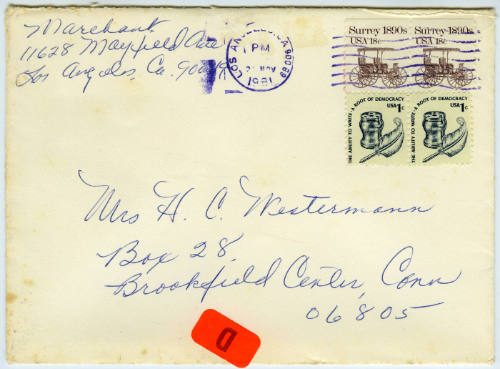 Marchant
11628 Mayfield Ave
Los Angeles, Ca. 90049
LOS ANGELES, CA 900
1 PM
NOV
1981
Surrey 1890s
USA 18c
Surrey 1890s
USA 18c
THE ABILITY TO WRITE · A ROOT OF DEMOCRACY
USA 1c
THE ABILITY TO WRITE · A ROOT OF DEMOCRACY
USA 1c
Mrs H. C. Westermann
Box 28.
Brookfield Center, Conn
06805
D